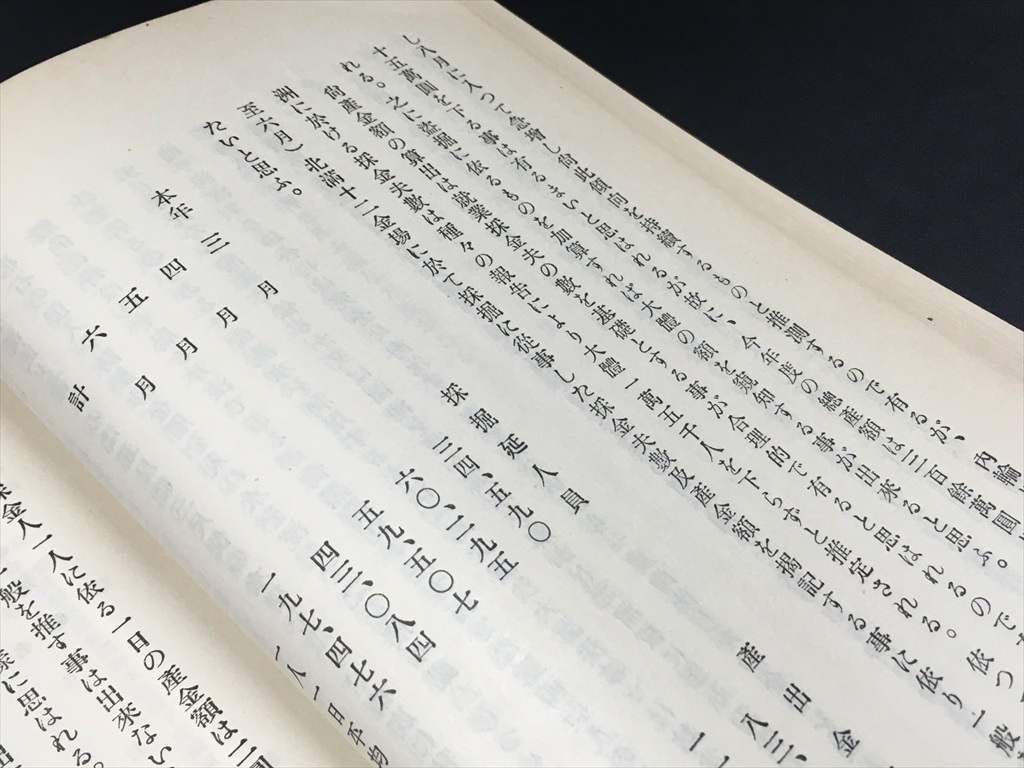 し八月に入つて急増し尙此傾向を持續するものと推測するので有るが、內輪
十五萬圓を下る事は有るまいと思はれるが故に、今年度の總產額は三百餘萬圓
れる。之に盜掘に依るものを加算すれば大體の額を窺知する事が出來ると思ふ。
尙產金額の算出は就業採金夫の數を基礎とする事が合理的で有ると思はれるので
洲に於ける採金夫數は種々の報告により大體一萬五千人を下らずと推定される。依つ
至六月）北滿十二金場に於て採掘に從事した採金夫數及產金額を揭記する事に依り一般
たいと思ふ。
採掘延人員 產出金
本年三月 三四、五九〇 八三、
四月 六〇、二九五 一
五月 五九、五〇七
六月 四三、〇八四
計 一九七、四七六
一人一日平均
採金人一人に依る一日の產金額は二
般を推す事は出來ない
樣に思はれる。